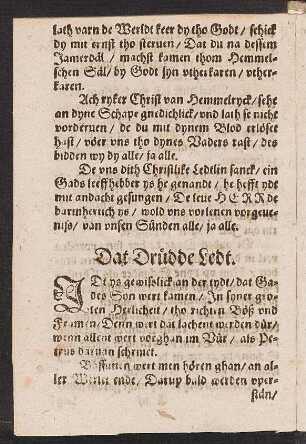 lath varn de Werldt keer dy tho Godt / schick
dy mit ernst tho steruen / Dat du na dessem
Jamerdäl / machst kamen thom Hemmel-
schen Säl / by Godt syn vtherkaren / vther-
karen.
Ach ryker Christ van Hemmelryck / sehe
an dyne Schape gnedichlick / vnd lath se nicht
vorderuen / de du mit dynem Blod erlöset
hast / vöer vns tho dynes Vaders rast / des
bidden wy dy alle / ja alle.
De vns dith Christlike Ledtlin sanck / ein
Gads leeffhebber ys he genandt / he hefft ydt
mit andacht gesungen / De leue HERR de
barmhertich ys / wold vns vorlenen vorgeue-
niß / van vnsen Sünden alle / ja alle.
Dat Drüdde Ledt.
IDt ys gewißlick an der tydt / dat Ga-
des Sön wert kamen / In syner gro-
ten Herlicheit / tho richten Böß vnd
Framen / Denn wert dat lachent werden dür /
wenn allent wert vorghan im Vür / als Pe-
trus daruan schrifft.
Bassunen wert men hören ghan / an al-
ler Werlt ende / Darup bald werden vper-
stän /